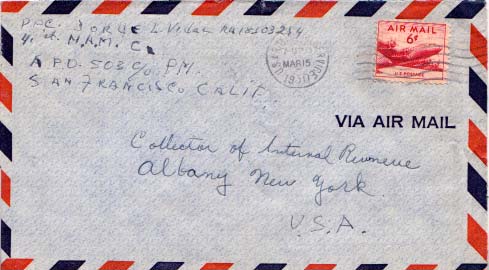 PFC. JORGE L. Vidal RA18503254
41 st. N.A.M. Co
A P.O. 503 c/o P.M.
SAN FRANCISCO CALIF.
MAR 15
AIR MAIL
6¢
U.S. POSTAGE
VIA AIR MAIL
Collector of Internal Revneue
Albany New York.
U.S.A.